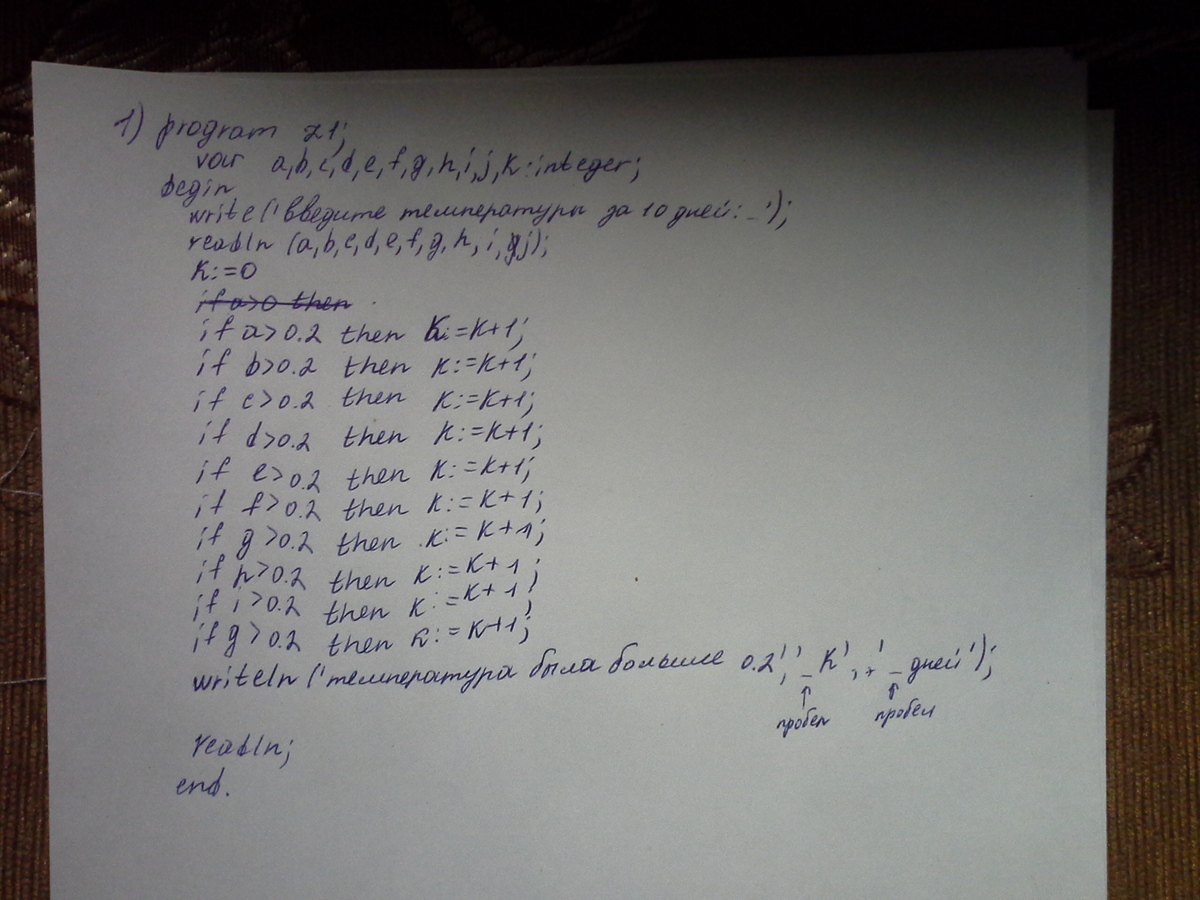 1) program z1;
var a,b,c,d,e,f,g,h,i,j,k:integer;
begin
write('введите температуры за 10 дней:_');
readln (a,b,c,d,e,f,g,h,i,j);
k:=0
if a>0 then
if a>0.2 then k:=k+1;
if b>0.2 then k:=k+1;
if c>0.2 then k:=k+1;
if d>0.2 then k:=k+1;
if e>0.2 then k:=k+1;
if f>0.2 then k:=k+1;
if g>0.2 then k:=k+1;
if h>0.2 then k:=k+1;
if i>0.2 then k:=k+1;
if g>0.2 then k:=k+1;
writeln ('температура была больше 0.2','_k',+'_дней');
пробел пробел
readln;
end.